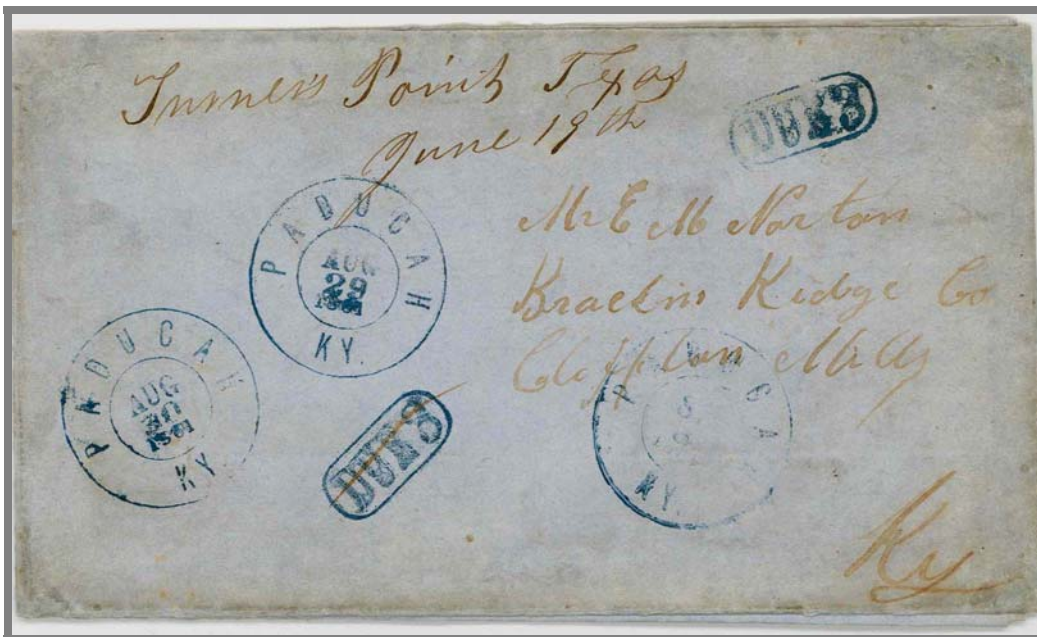 Turners Point Texas
June 19th
DUE 3
PADUCAH
AUG
29
1861
KY.
Mr E M Norton
Brackin Ridge Co
Cliffton Mills
PADUCAH
AUG
30
1861
KY
DUE
PADUCAH
KY.
Ky